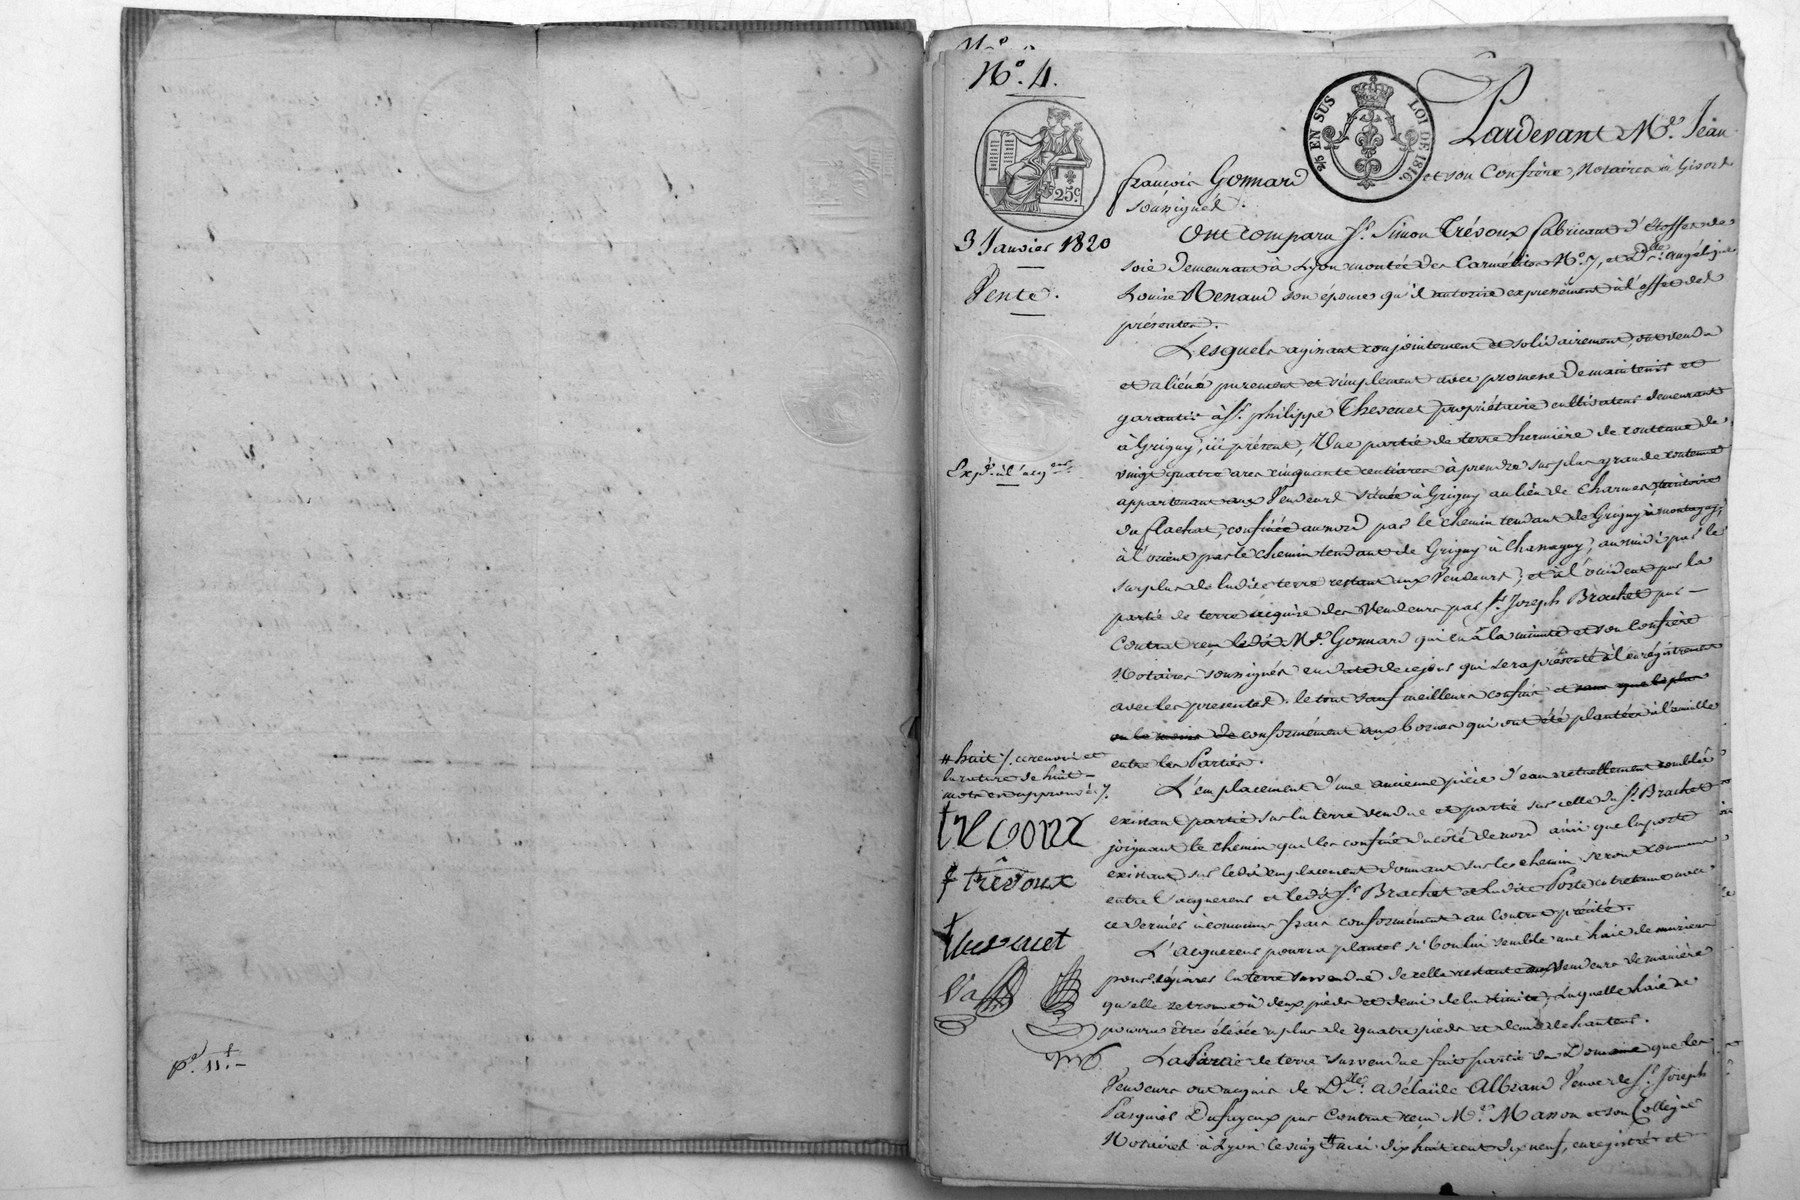 N.° 4.
25.c
2/5 EN SUS LOI DE 1816.
Pardevant M.e Jean
françois Gonnard et son Confrère, Notaires à Givors
soussignés.
3 Janvier 1820
Ont comparu Sr. Simon Trévoux fabricant d'étoffes de
soie demeurant à Lyon montée des Carmélites N.° 7, et Dlle. angélique
Vente.
Louise Renaud son épouse qu'il autorise expressément à l'effet des
présentes.
Lesquels agissant conjointement et solidairement, ont vendu
et aliéné purement et simplement avec promesse de maintenir et
garantir à Sr. philippe Thevenet propriétaire cultivateur demeurant
à Grigny, ici présent, Une partie de terre hermière de contenue de
Expd. à l'acqeur.
vingt quatre ares cinquante centiares à prendre sur plus grande contenue
appartenant aux Vendeurs située à Grigny au lieu de Charmes, territoire
du flachat, confinée au nord par le chemin tendant de Grigny à montagny;
à l'orient par le chemin tendant de Grigny à Chassagny; au midi par le
surplus de ladite terre restant aux Vendeurs; et à l'occident par la
partie de terre acquise des Vendeurs par Sr. Joseph Brachet par
Contrat reçu ledit Me. Gonnard qui en a la minute et son Confrère
Notaires soussignés en date de ce jour qui sera présenté à l'enrégistrement
avec les présentes. le tout sauf meilleurs confins et sans que le plus
ou le moins de conformément aux bornes qui ont été plantées à l'amiable
entre les Parties.
# huit /. ce renvoi et
la rature de huit
mots en approuvés /.
L'emplacement d'une ancienne pièce d'eau actuellement comblée
existant partie sur la terre vendue et partie sur celle du Sr. Brachet
joignant le chemin qui les confine du côté de nord ainsi que la porte
existant sur ledit emplacement donnant sur le chemin seront communs
entre l'acquereur et ledit Sr. Brachet et ladite Porte entretenue avec
ce dernier à communs frais conformément au Contrat précité.
trevoux
f trevoux
thevenet
L'acquereur pourra planter si bon lui semble une haie de muriers
pour séparer la terre sus vendue de celle restante aux Vendeurs de manière
qu'elle se trouve à deux pieds et demi de la limite, Laquelle haie ne
pourra être élevée à plus de quatre pieds et demi de hauteur.
La Partie de terre sus vendue fait partie du Domaine que les
Vendeurs ont acquis de Dlle. adélaïde Albrand Veuve de Sr. Joseph
Pasquier Dufayeux par Contrat reçu Me. Masson et son Collègue
Notaires à Lyon le vingt mai dix huit cent dix neuf, enregistré et